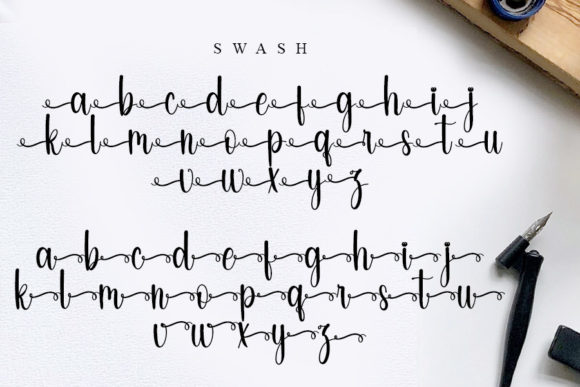 SWASH
a b c d e f g h i j
k l m n o p q r s t u
v w x y z
a b c d e f g h i j
k l m n o p q r s t u
v w x y z